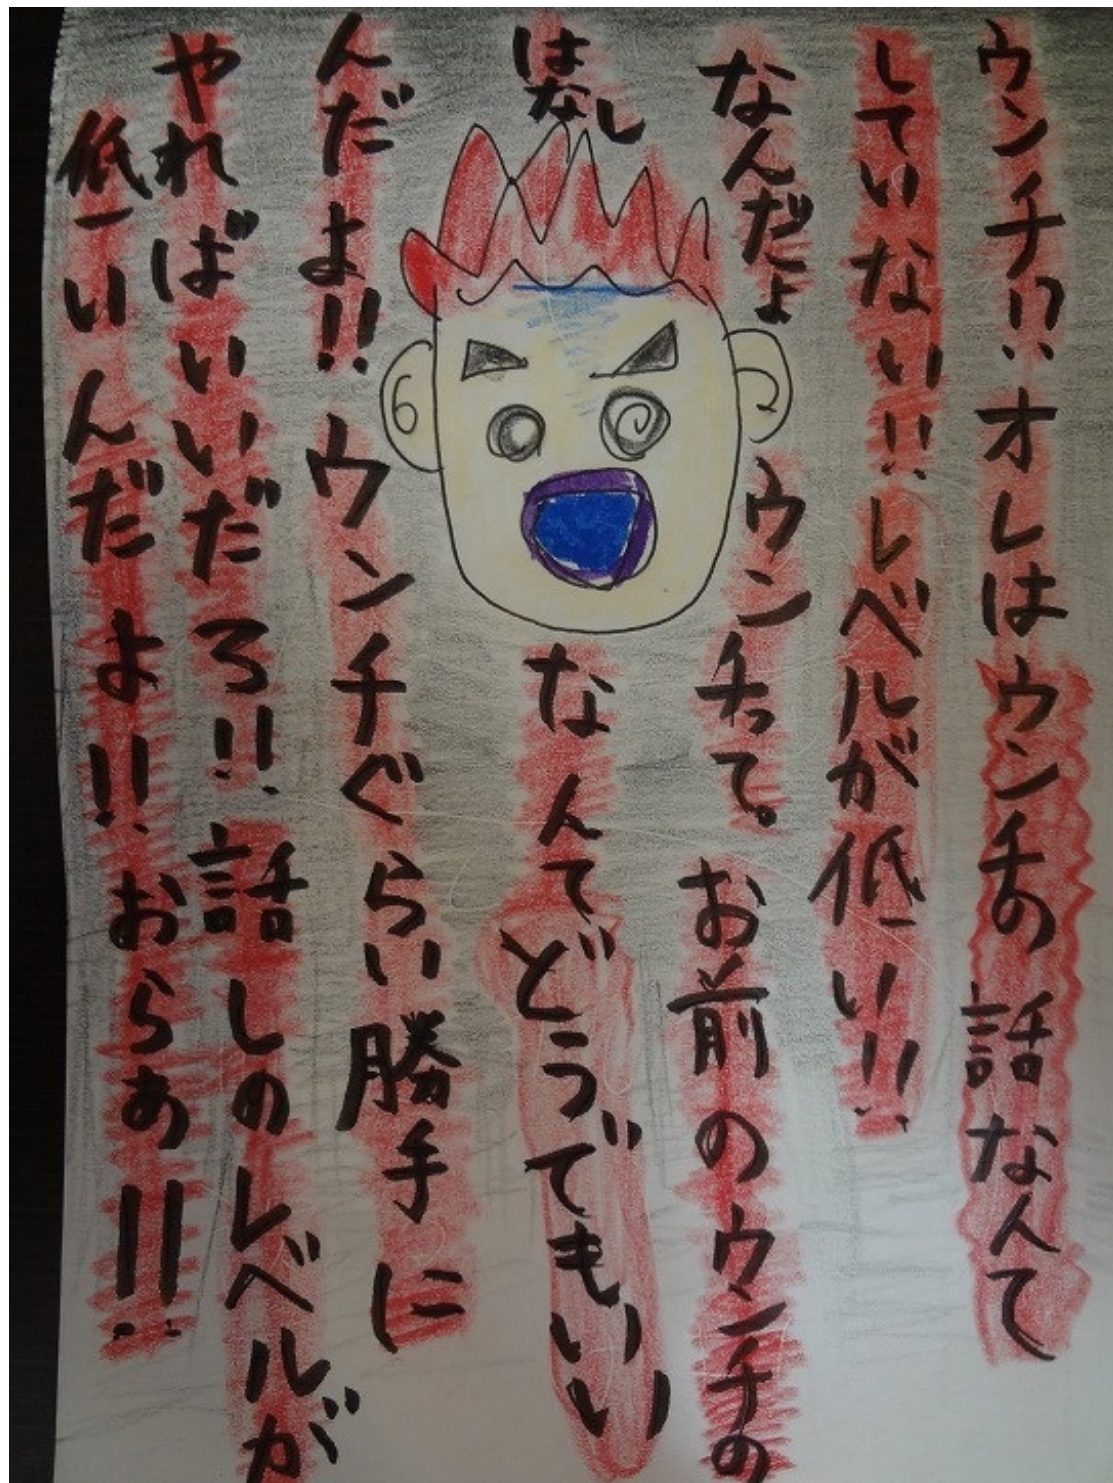 ウンチ!?オレはウンチの話なんて
していない!!レベルが低い!!
なんだよ ウンチって。お前のウンチの
はなしなんてどうでもいい
んだよ!!ウンチぐらい勝手に
やればいいだろ!!話しのレベルが
低いんだよ!!おらぁ!!